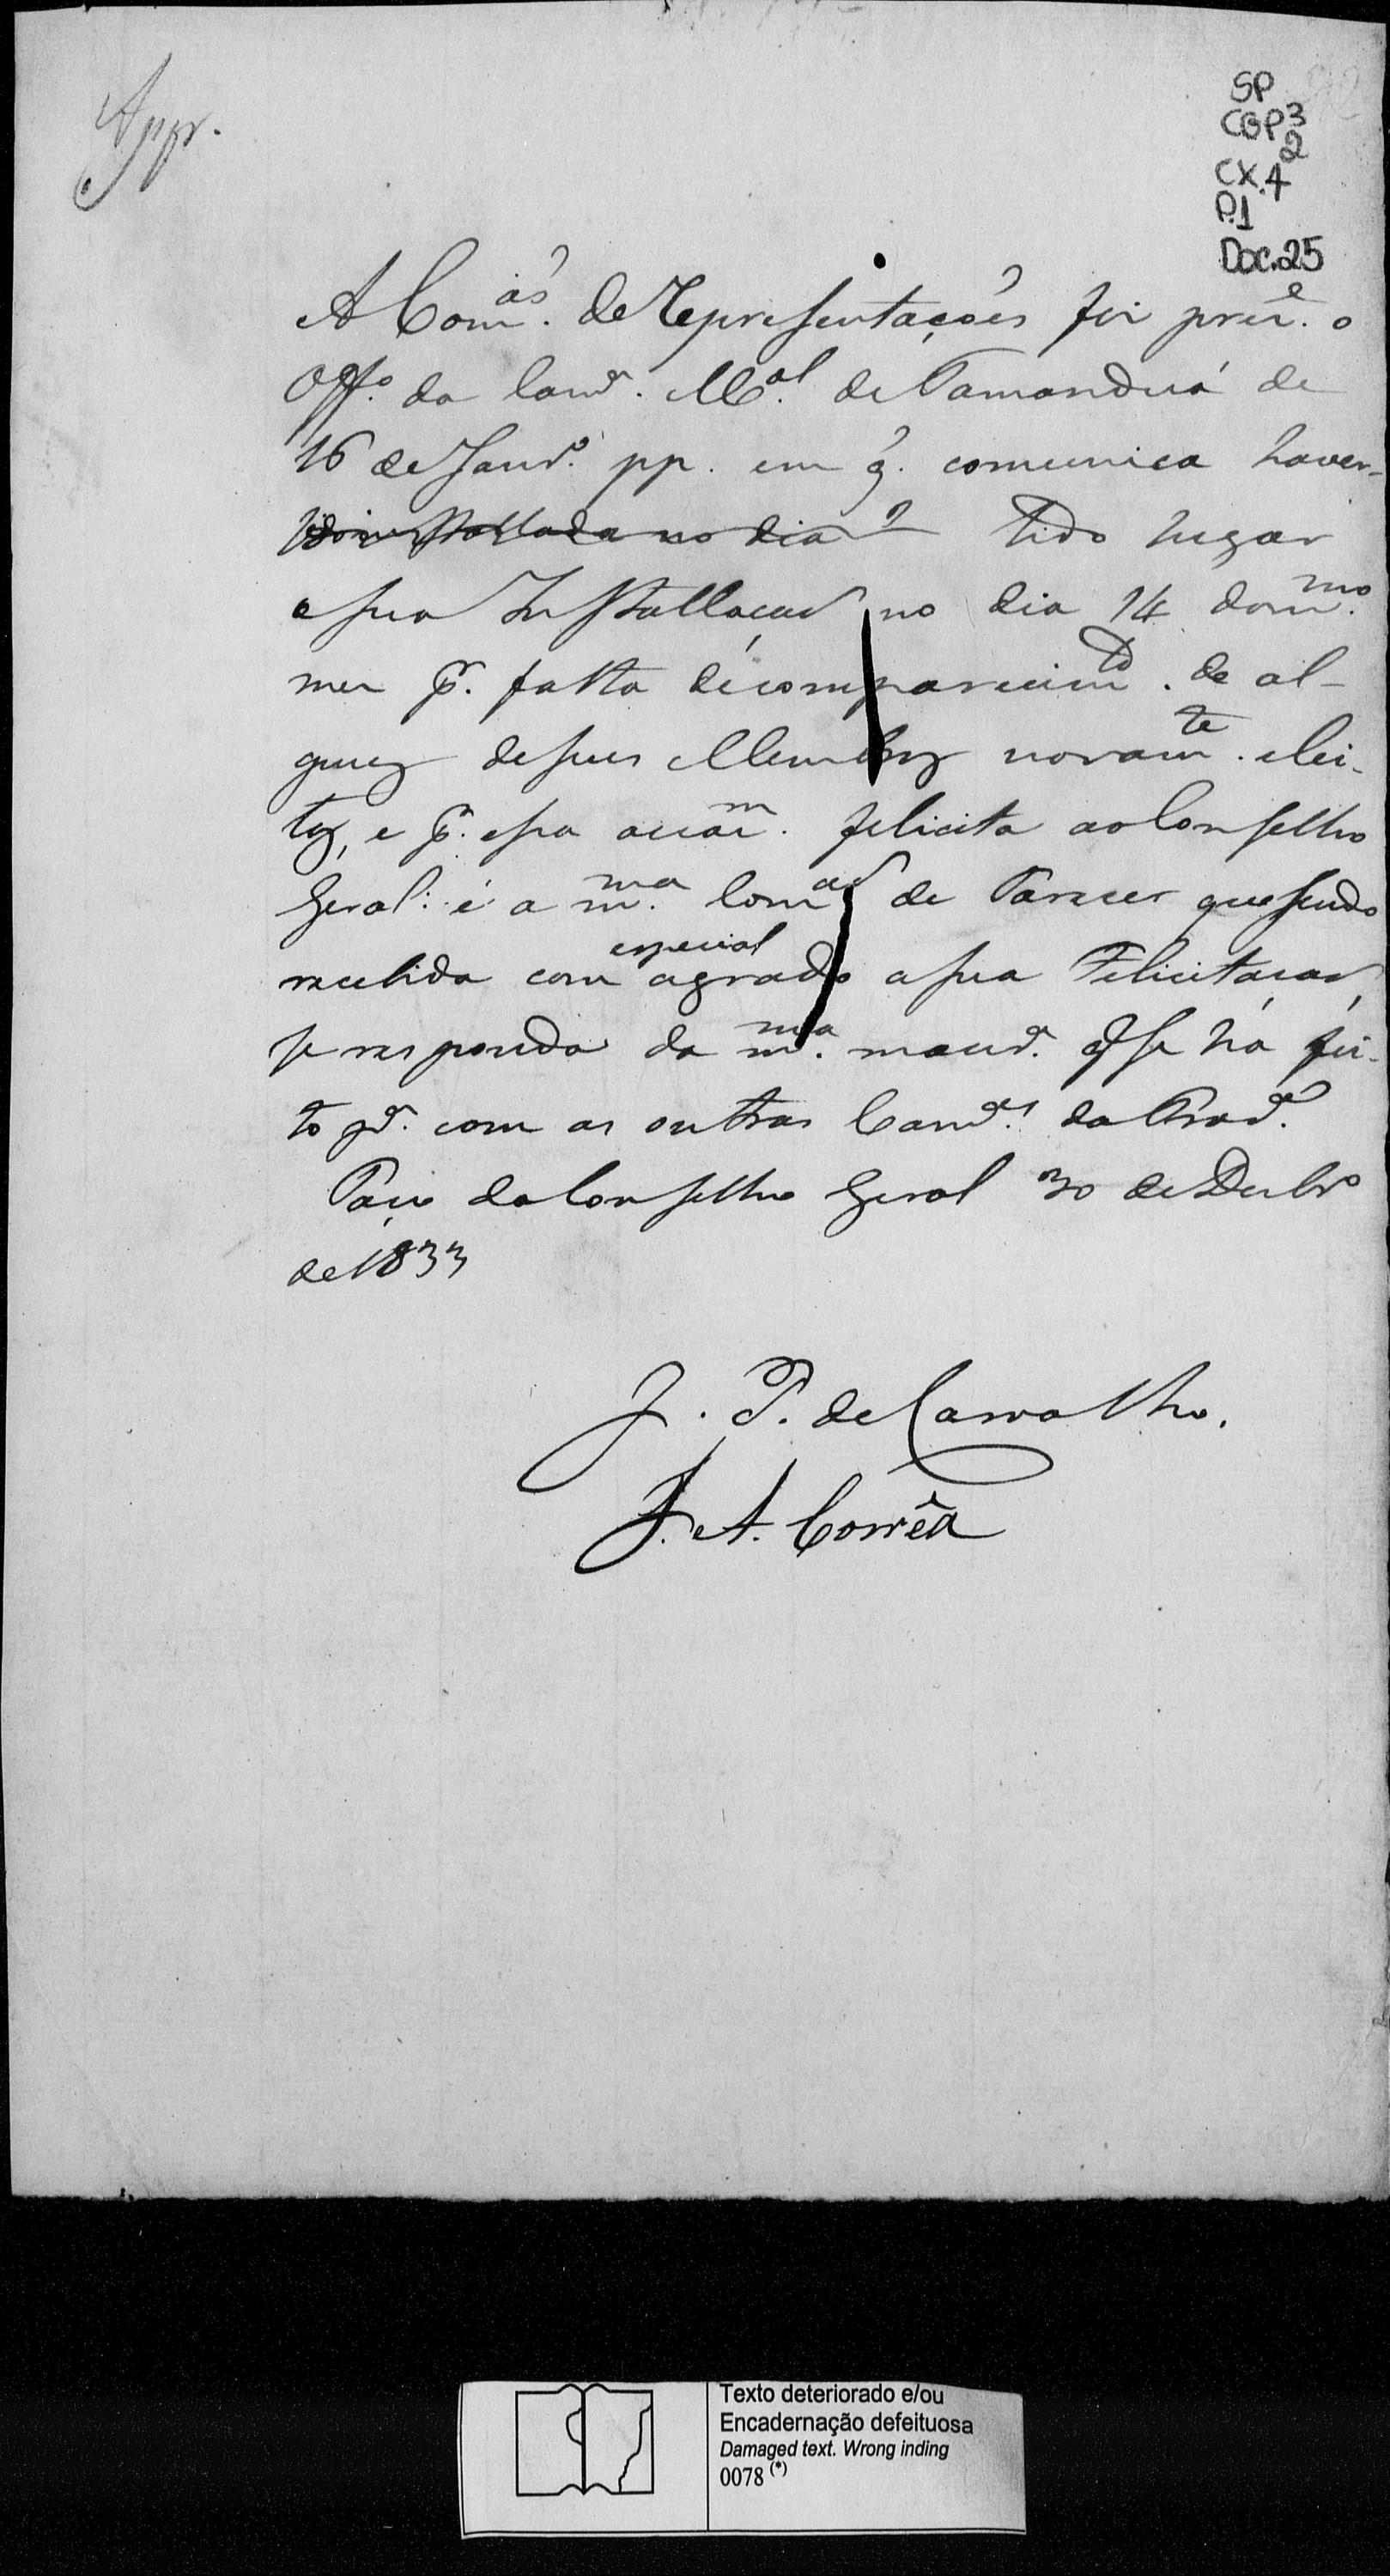 Appr.
SP
CGP3
2
CX.4
P.1
Doc.25
A Com.ão de Representações foi prẽ.e o
Off.o da Cam.a M.al de Tamanduá de
16 de Janr.o pp. em q. comunica haver-
installada no dia tido lugar
a sua Installação no dia 14 do m.mo
mez p.r falta de comparecim.to de al-
guns de seus Membros novam.te elei-
tos, e p.r essa ocam. felicita ao Conselho
Geral: é a m.ma Com.ão de Parecer que sendo
recebida com especial agrado a sua Felicitação,
se responda da m.ma man.ra q se há fei-
to p.a com as outras Cam.as da Prov.a
Paço do Conselho Geral 30 de Dezbr.o
de 1833
J. P. de Carvalho.
J. A. Corrêa
Texto deteriorado e/ou
Encadernação defeituosa
Damaged text. Wrong inding
0078 (*)